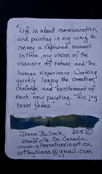 "Life is about communication,
and painting is my way to
convey a captured moment
in time, my vision of the
essence of nature and the
human experience. Working
quickly begins the creative
challenge and excitement of
each new painting. This joy
never fades."
Diana Bullock 2015 ©
Stouffville On. Canada
artbydiana@gmail.com